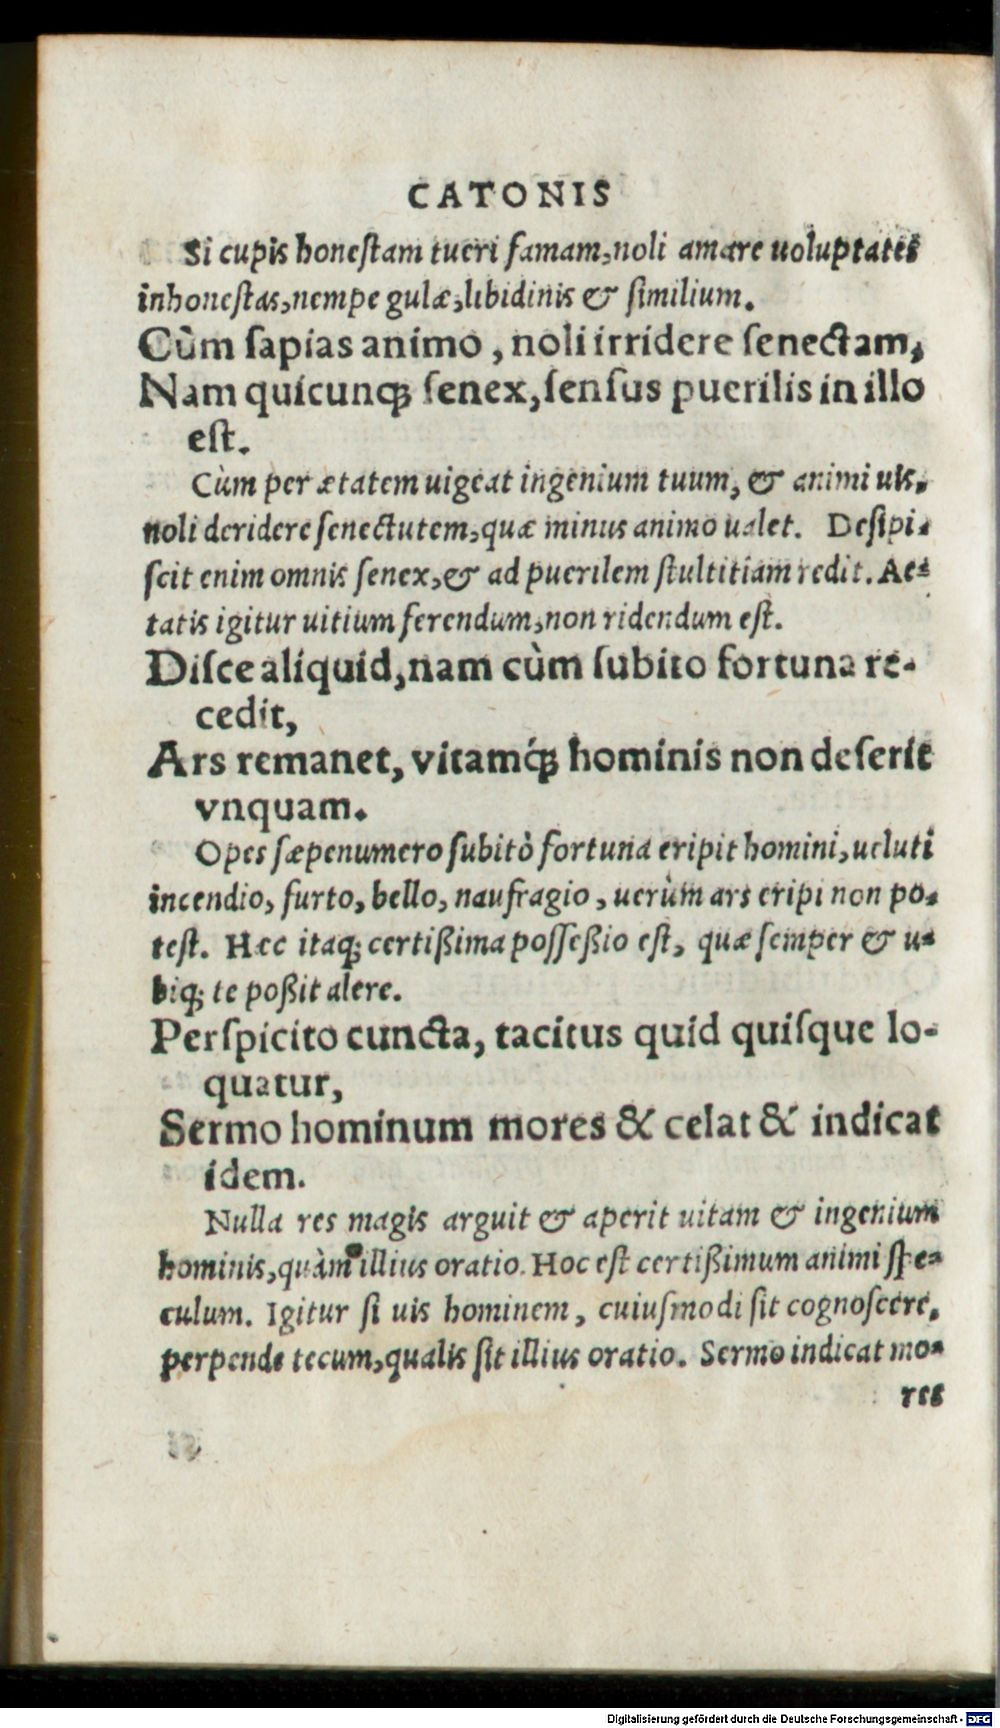 CATONIS
Si cupis honeſtam tueri famam, noli amare uoluptates
inhoneſtas, nempe gulæ, libidinis & ſimilium.
Cùm ſapias animo, noli irridere ſenectam,
Nam quicunq; ſenex, ſenſus puerilis in illo
eſt.
Cùm per ætatem uigeat ingenium tuum, & animi uis,
noli deridere ſenectutem, quæ minus animo ualet. Deſipi-
ſcit enim omnis ſenex, & ad puerilem ſtultitiam redit. Ae-
tatis igitur uitium ferendum, non ridendum eſt.
Diſce aliquid, nam cùm ſubito fortuna re-
cedit,
Ars remanet, vitamq́; hominis non deſerit
vnquam.
Opes ſæpenumero ſubitò fortuna eripit homini, ueluti
incendio, furto, bello, naufragio, uerùm ars eripi non po-
teſt. Hæc itaq; certißima poſſeßio eſt, quæ ſemper & u-
biq; te poßit alere.
Perſpicito cuncta, tacitus quid quiſque lo-
quatur,
Sermo hominum mores & celat & indicat
idem.
Nulla res magis arguit & aperit uitam & ingenium
hominis, quàm illius oratio. Hoc eſt certißimum animi ſpe-
culum. Igitur ſi uis hominem, cuiuſmodi ſit cognoſcere,
perpende tecum, qualis ſit illius oratio. Sermo indicat mo-
res
Digitalisierung gefördert durch die Deutsche Forschungsgemeinschaft - DFG